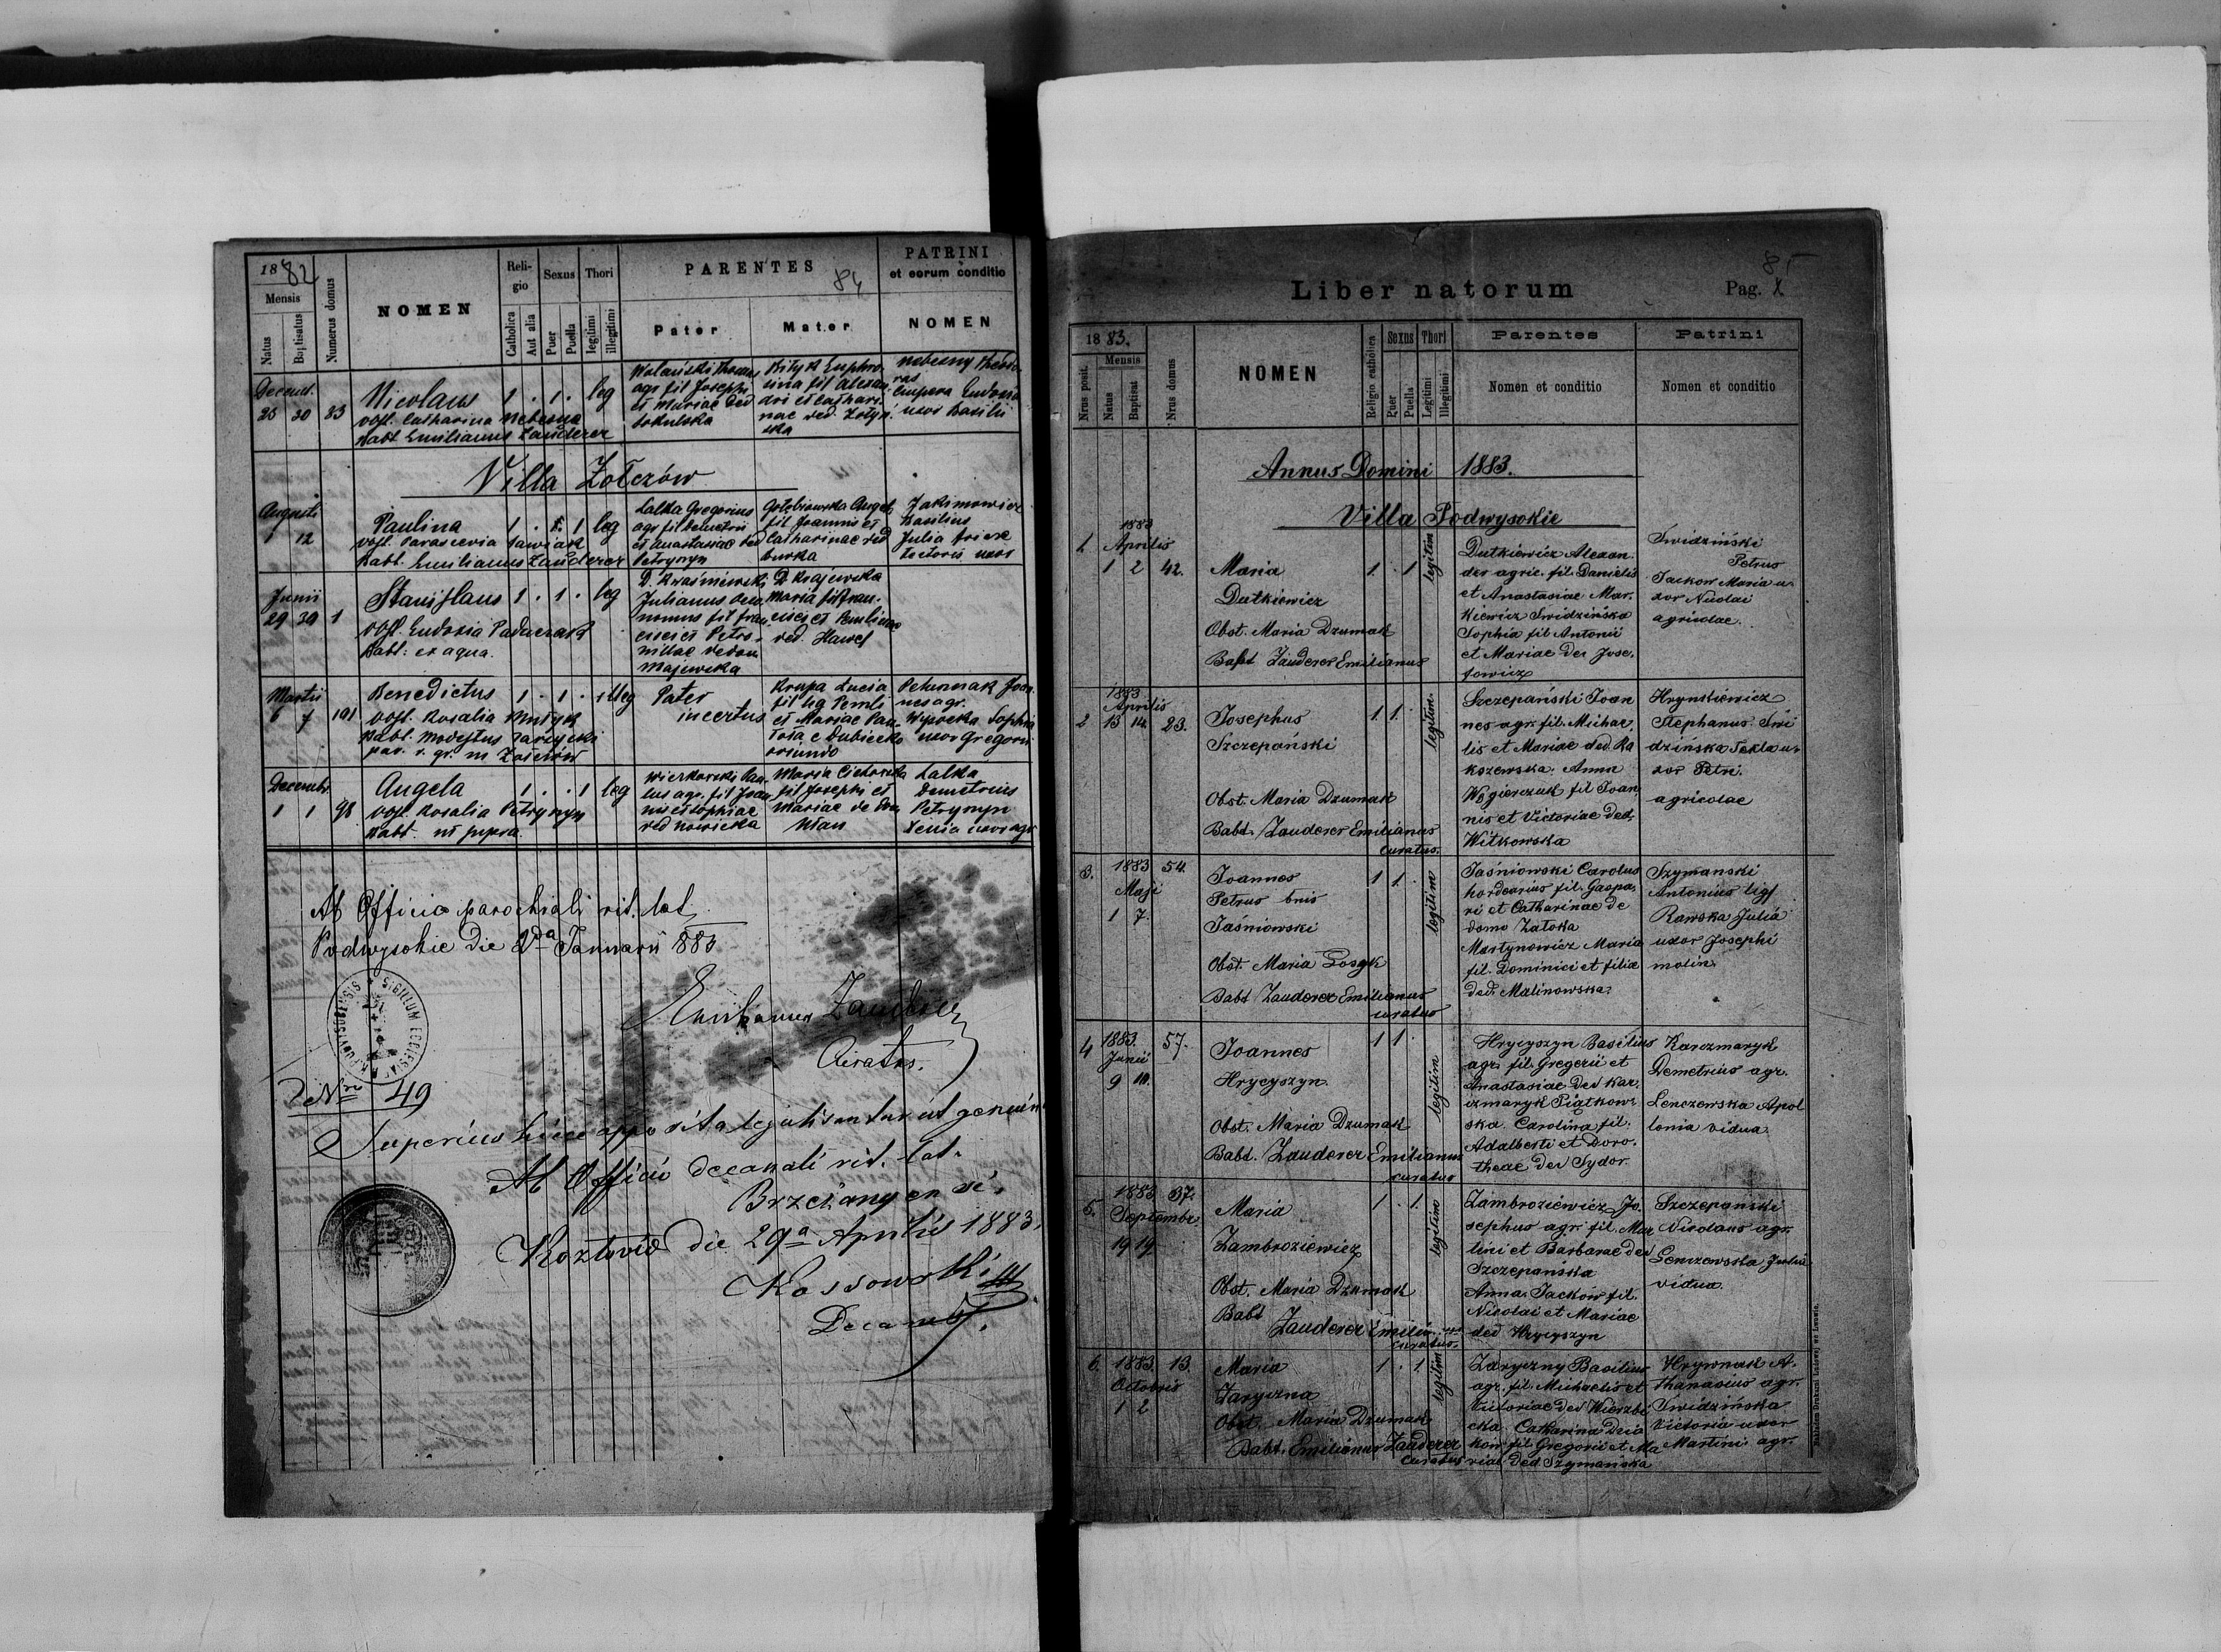 1882
Mensis
Natus
Baptisatus
Numerus domus
NOMEN
Religio
Catholica
Aut alia
Sexus
Puer
Puella
Thori
legitimi
illegitimi
PARENTES
84
Pater
Mater
PATRINI
et eorum conditio
NOMEN
Decemb.
25 30 83
Nicolaus 1 . 1 . leg
obst. Catharina Nebesna
Babt Emilianus Zauderer
Wolański Thomas
agr fil Josephi
et Mariae ded
Sokulska
Bityk Euphro-
sina fil Alexan-
dri et Cathari-
nae ded
ska
Nebesny Theodo-
rus
Eudoxia
uxor Basilii
Villa Żołczów
Augusti
1 12
Paulina 1 . 1 leg
obst. Parascevia Sawiak
Babt. Emilianus Zauderer
Lalka Gregorius
agr fil Demetrii
et Anastasiae ded
Petrynyn
Gołębiowska Angela
fil Joannis et
Catharinae ded
burka
Jakimowicz
Basilius
Julia
tectoris uxor
Junii
29 30 1
Stanislaus 1 . 1 . leg
obst. Eudoxia Paduczak
Babt: ex aqua.
D. Kraśniewski
Julianus oeco
nomus fil Fran
cisci et Petro-
nillae de dom
Majewska
D Krajewska
Maria fil Fran-
cisci et Paulinae
ded. Hawel
Martii
6 7 101
Benedictus 1 . 1 . illeg
obst. Rosalia
Babt. Modestus
par. r. gr. in Żołczów
Pater
incertus
Krupa Lucia
fil
et Mariae Pau-
e Dubiecko
oriundo
Joan-
nes agr.
Wysocka Sophia
uxor Gregorii
Decembr.
1 1 98
Angela 1 . . 1 leg
obst. Rosalia Petrynyn
Babt. ut supra.
Wierkowski Pau-
lus agr. fil Joan
nis et Sophiae
ded Nowicka
Maria
fil Josephi et
Mariae de
Lalka
Demetrius
Petrynyn
Xenia uxor agr
Ab Officio parochiali rit. lat
Podwysokie die 2da Januarii 883
Emilianus Zauderer
Curatus.
SIGILLUM ECCLESIAE
Nro 49
Superius hicce apposita legalisantur ut genuina
Ab Officio decanali rit. lat.
Brzeżanyensi.
Kozłowie die 29a Aprilis 1883.
Kossowski
Decanus.
Liber natorum
85
Pag. X
1883.
Nrus posit.
Mensis
Natus
Baptisat
Nrus domus
NOMEN
Religio catholica
Sexus
Puer
Puella
Thori
Legitimi
Illegitimi
Parentes
Nomen et conditio
Patrini
Nomen et conditio
Annus Domini 1883.
Villa Podwysokie
1883
1. Aprilis
1 2 42.
Maria 1. . 1 legitim
Dutkiewicz
Obst. Maria Dzumak
Babt Zauderer Emilianus
Dutkiewicz Alexan-
der agric. fil. Danielis
et Anastasiae Mar-
kiewicz Swidzińska
Sophia fil Antonii
et Mariae der Jose-
fowicz
Swidziński
Petrus
Jackow Maria u-
xor Nicolai
agricolae.
1883
Aprilis
2 13 14. 23.
Josephus 1. 1. legitim.
Szczepański
Obst. Maria Dzumak
Babt. Zauderer Emilianus
curatus.
Szczepański Joan
nes agr. fil. Michae-
lis et Mariae ded. Ra
koszewska. Anna
Węgierczuk fil Joan
nis et Victoriae ded.
Witkowska
Hrynkiewicz
Stephanus Swi
dzińska Tekla u-
xor Petri.
agricolae
3. 1883 54.
Maji
1 7.
Joannes 1 1. legitim
Petrus bnis
Jaśniowski
Obst. Maria Łosyk
Babt Zauderer Emilianus
curatus
Jaśniowski Carolus
hordearius fil. Gaspa-
ri et Catharinae de
domo Zatoka
Martynowicz Maria
fil. Dominici et filiae
ded. Malinowska.
Szymanski
Antonius lig
Rawska Julia
uxor Josephi
molin.
4 1883. 57.
Junii
9 10.
Joannes 1 1. legitim
Hrycyszyn
Obst. Maria Dzumak
Babt. Zauderer Emilianus
curatus
Hrycyszyn Basilius
agr. fil. Gregerii et
Anastasiae ded Kar-
czmaryk Piątkow-
ska Carolina fil.
Adalberti et Doro-
theae der Sydor.
Karczmaryk
Demetrius agr.
Lenczewska Apol
lonia vidua
5. 1883 37.
Septembr.
19 19
Maria 1 . 1. legitim
Zambroziewicz
Obst. Maria Dzumak
Babt
Zauderer Emilianus
curatus.
Zambroziewicz Jo-
sephus agr. fil. Mar
tini et Barbarae der
Szczepańska
Anna Jackow fil.
Nicolai et Mariae
ded Hrycyszyn
Szczepański
Nicolaus agr.
Lenczewska Julia
vidua
6. 1883. 13.
Octobris
1 2
Maria 1 . 1. legitim
Zaryczna
Obst. Maria Dzumak
Babt. Emilianus Zauderer
curatus
Zaryczny Basilius
agr. fil. Michaelis et
Victoriae ded Wierzbi
cka Catharina Dzia
kow fil Gregorii et Ma
riae ded Szymańska
Hrywnak A-
thanasius agr.
Swidzińska
Victoria uxor
Martini agr.
Nakładem Drukarni Ludowej we Lwowie.